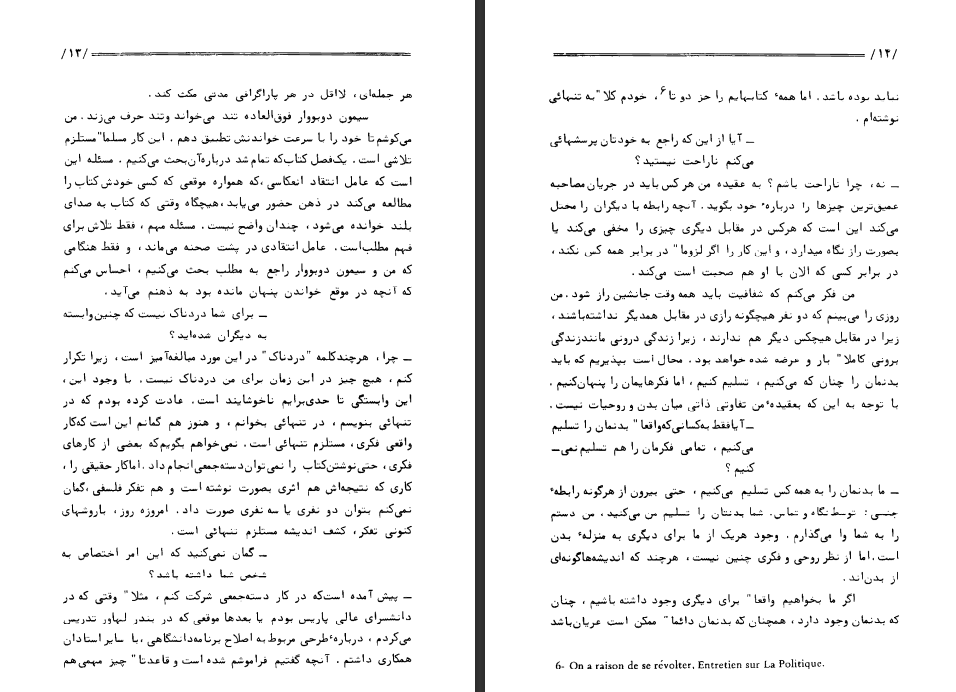 /۱۳/
هر جمله‌ای، لااقل در هر پاراگرافی مدتی مکث کند.
سیمون دوبووار فوق‌العاده تند می‌خواند وتند حرف می‌زند. من
می‌کوشم تا خود را با سرعت خواندنش تطبیق دهم. این کار مسلما" مستلزم
تلاشی است. یک‌فصل کتاب‌که تمام شد درباره‌آن‌بحث می‌کنیم. مسئله این
است که عامل انتقاد انعکاسی، که همواره موقعی که کسی خودش کتاب را
مطالعه می‌کند در ذهن حضور می‌یابد، هیچگاه وقتی که کتاب به صدای
بلند خوانده می‌شود، چندان واضح نیست. مسئله مهم، فقط تلاش برای
فهم مطلب‌است. عامل انتقادی در پشت صحنه می‌ماند، و فقط هنگامی
که من و سیمون دوبووار راجع به مطلب بحث می‌کنیم، احساس می‌کنم
که آنچه در موقع خواندن پنهان مانده بود به ذهنم می‌آید.
ــ برای شما دردناک نیست که چنین‌وابسته
به دیگران شده‌اید؟
ــ چرا، هرچندکلمه "دردناک" در این مورد مبالغه‌آمیز است، زیرا تکرار
کنم، هیچ چیز در این زمان برای من دردناک نیست. با وجود این،
این وابستگی تا حدی‌برایم ناخوشایند است. عادت کرده بودم که در
تنهائی بنویسم، در تنهائی بخوانم، و هنوز هم گمانم این است‌که‌کار
واقعی فکری، مستلزم تنهائی است. نمی‌خواهم بگویم‌که بعضی از کارهای
فکری، حتی‌نوشتن‌کتاب را نمی‌توان‌دسته‌جمعی‌انجام داد. اما‌کار حقیقی را،
کاری که نتیجه‌اش هم اثری بصورت نوشته است و هم تفکر فلسفی، گمان
نمی‌کنم بتوان دو نفری یا سه نفری صورت داد. امروزه روز، باروشهای
کنونی تفکر، کشف اندیشه مستلزم تنهائی است.
ــ گمان نمی‌کنید که این امر اختصاص به
شخص شما داشته باشد؟
ــ پیش آمده است‌که در کار دسته‌جمعی شرکت کنم، مثلا" وقتی که در
دانشسرای عالی پاریس بودم یا بعدها موقعی که در بندر لهاور تدریس
می‌کردم، درباره ٔ طرحی مربوط به اصلاح برنامه‌دانشگاهی، با سایر استادان
همکاری داشتم. آنچه گفتیم فراموشم شده است و قاعدتا" چیز مهمی‌هم
/۱۴/
نباید بوده باشد. اما همه ٔ کتابهایم را جز دو تا۶، خودم کلا" به تنهائی
نوشته‌ام.
ــ آیا از این که راجع به خودتان پرسشهائی
می‌کنم ناراحت نیستید؟
ــ نه، چرا ناراحت باشم؟ به عقیده من هرکس باید در جریان مصاحبه
عمیق‌ترین چیزها را درباره ٔ خود بگوید. آنچه رابطه با دیگران را مختل
می‌کند این است که هرکس در مقابل دیگری چیزی را مخفی می‌کند یا
بصورت راز نگاه میدارد، و این کار را اگر لزوما" در برابر همه کس نکند،
در برابر کسی که الان با او هم صحبت است می‌کند.
من فکر می‌کنم که شفافیت باید همه وقت جانشین راز شود. من
روزی را می‌بینم که دو نفر هیچگونه رازی در مقابل همدیگر نداشته‌باشند،
زیرا در مقابل هیچکس دیگر هم ندارند، زیرا زندگی درونی مانندزندگی
برونی کاملا" باز و عرضه شده خواهد بود. محال است بپذیریم که باید
بدنمان را چنان که می‌کنیم، تسلیم کنیم، اما فکرهایمان را پنهان‌کنیم.
با توجه به این که بعقیده ٔ من تفاوتی ذاتی میان بدن و روحیات نیست.
ــ آیافقط به‌کسانی‌که‌واقعا" بدنمان را تسلیم
می‌کنیم، تمامی فکرمان را هم تسلیم نمی‌ــ
کنیم؟
ــ ما بدنمان را به همه کس تسلیم می‌کنیم، حتی بیرون از هرگونه رابطه ٔ
جنسی: توسط‌نگاه و تماس. شما بدنتان را تسلیم من می‌کنید، من دستم
را به شما وا می‌گذارم. وجود هریک از ما برای دیگری به منزله ٔ بدن
است. اما از نظر روحی و فکری چنین نیست، هرچند که اندیشه‌هاگونه‌ای
از بدن‌اند.
اگر ما بخواهیم واقعا" برای دیگری وجود داشته باشیم، چنان
که بدنمان وجود دارد، همچنان که بدنمان دائما" ممکن است عریان‌باشد
6- On a raison de se révolter, Entretien sur La Politique.